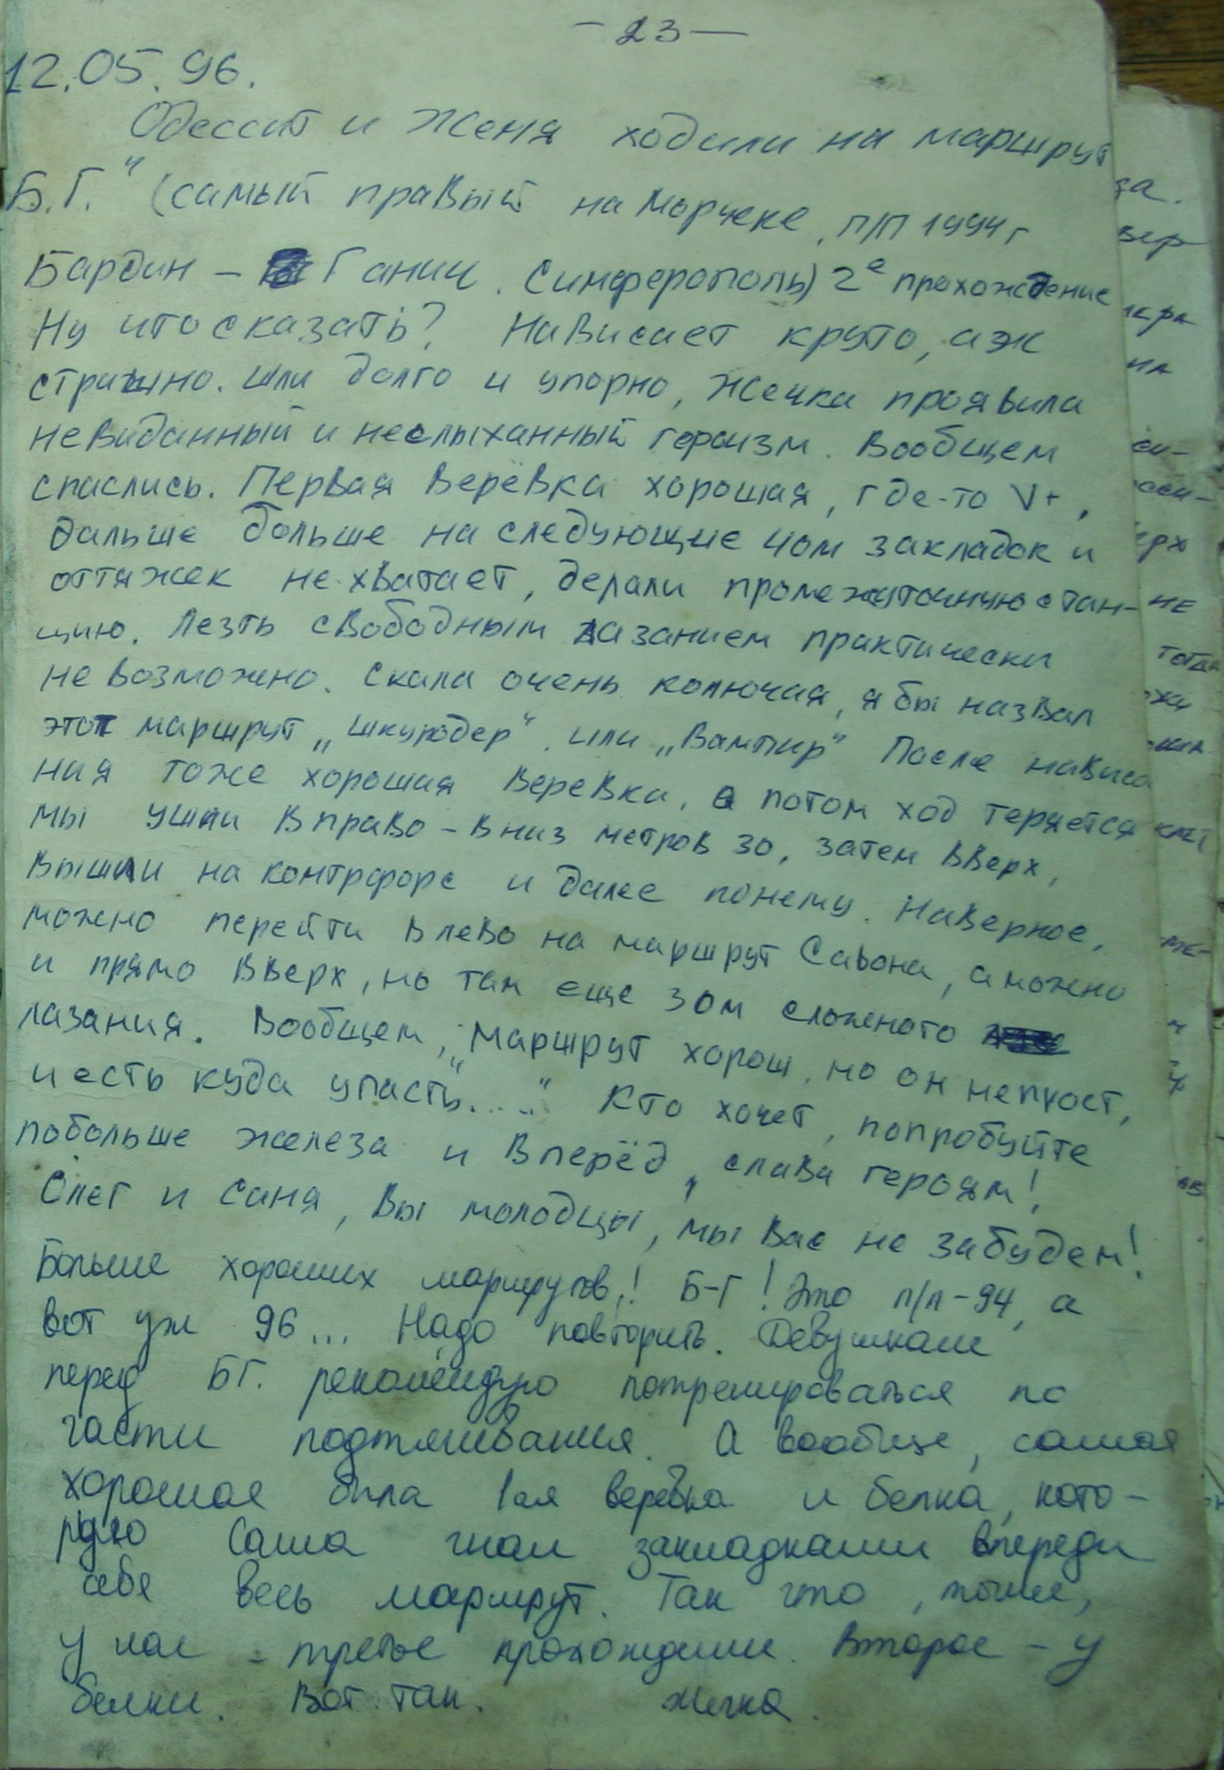 - 23 -
12.05.96.
Одессит и Женя ходили на маршрут
Б.Г." (самый правый на Морчеке, п/п 1994 г
Бардин - Ганич. Симферополь) 2е прохождение
Ну что сказать? Нависает круто, аж
страшно. Шли долго и упорно, Жечка проявила
невиданный и неслыханный героизм. Вообщем
спаслись. Первая верёвка хорошая, где-то V+,
дальше больше на следующие 40м закладок и
оттяжек не хватает, делали промежуточную стан-
цию. Лезть свободным лазанием практически
невозможно. Скала очень колючая, я бы назвал
этот маршрут „Шкуродер". или „Вампир" После нависа
ния тоже хорошая веревка, а потом ход теряется
мы ушли вправо - вниз метров 30, затем вверх,
вышли на контрфорс и далее по нему. Наверное,
можно перейти влево на маршрут Савона, а можно
и прямо вверх, но там еще 30м сложного
лазания. Вообщем, "Маршрут хорош, но он не прост,
и есть куда упасть"....." Кто хочет, попробуйте
побольше железа и вперёд, слава героям!
Олег и Саня, Вы молодцы, мы Вас не забудем!
Больше хороших маршрутов,! Б-Г! Это п/п-94, а
вот уж 96... Надо повторить. Девушкам
перед БГ. рекомендую потренироваться по
части подтягивания. А вообще, самая
хорошая была 1ая верёвка и белка, кото-
рую Саша гнал закладками впереди
себя весь маршрут. Так что,
у нас - третье прохождение. Второе - у
белки. Вот так. Жечка.